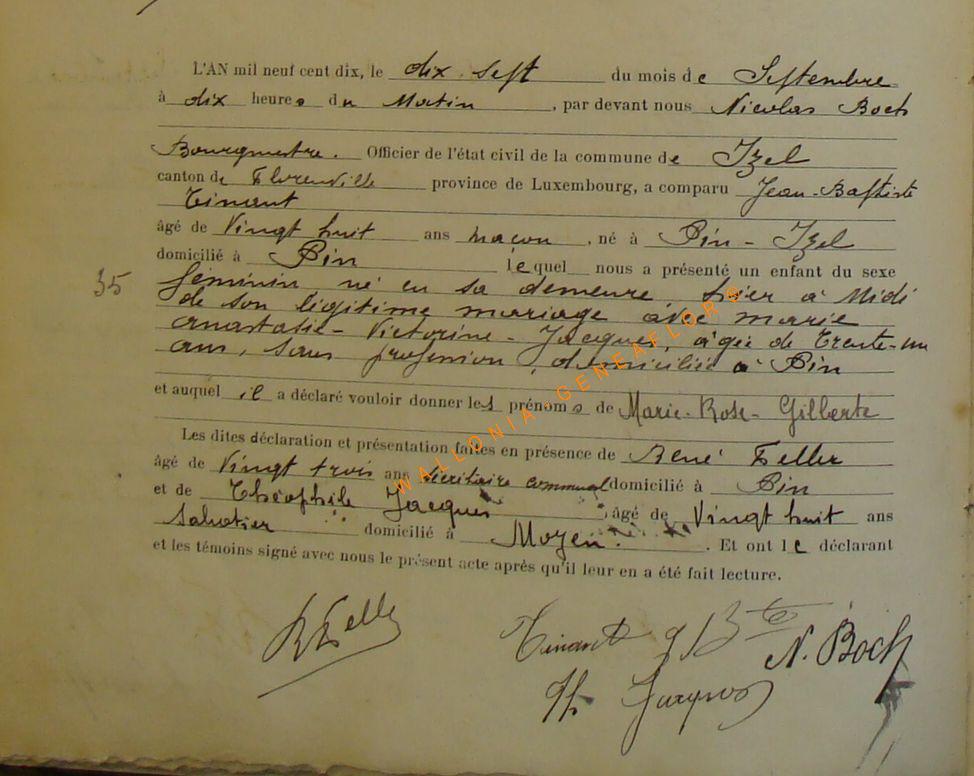 L'AN mil neuf cent dix, le dix sept du mois de Septembre
à dix heures du Matin, par devant nous Nicolas Boch
Bourgmestre. Officier de l'état civil de la commune de Izel
canton de Florenville province de Luxembourg, a comparu Jean-Baptiste
Tinant
âgé de Vingt huit ans maçon, né à Pin-Izel
domicilié à Pin lequel nous a présenté un enfant du sexe
35
féminin, né en sa demeure, hier à Midi
de son légitime mariage avec marie
anastasie-Victorine-Jacques, âgée de Trente-un
ans, sans profession, domiciliée à Pin
et auquel il a déclaré vouloir donner les prénoms de Marie-Rose-Gilberte
Les dites déclaration et présentation faites en présence de René Feller
âgé de Vingt trois ans secrétaire communal domicilié à Pin
et de Théophile Jacques, âgé de Vingt huit ans
Sabotier domicilié à Moyen. Et ont le déclarant
et les témoins signé avec nous le présent acte après qu'il leur en a été fait lecture.
WALLONIA-GENEAFLORE
R Feller
Tinant J Bte
N. Boch
Th Jacques